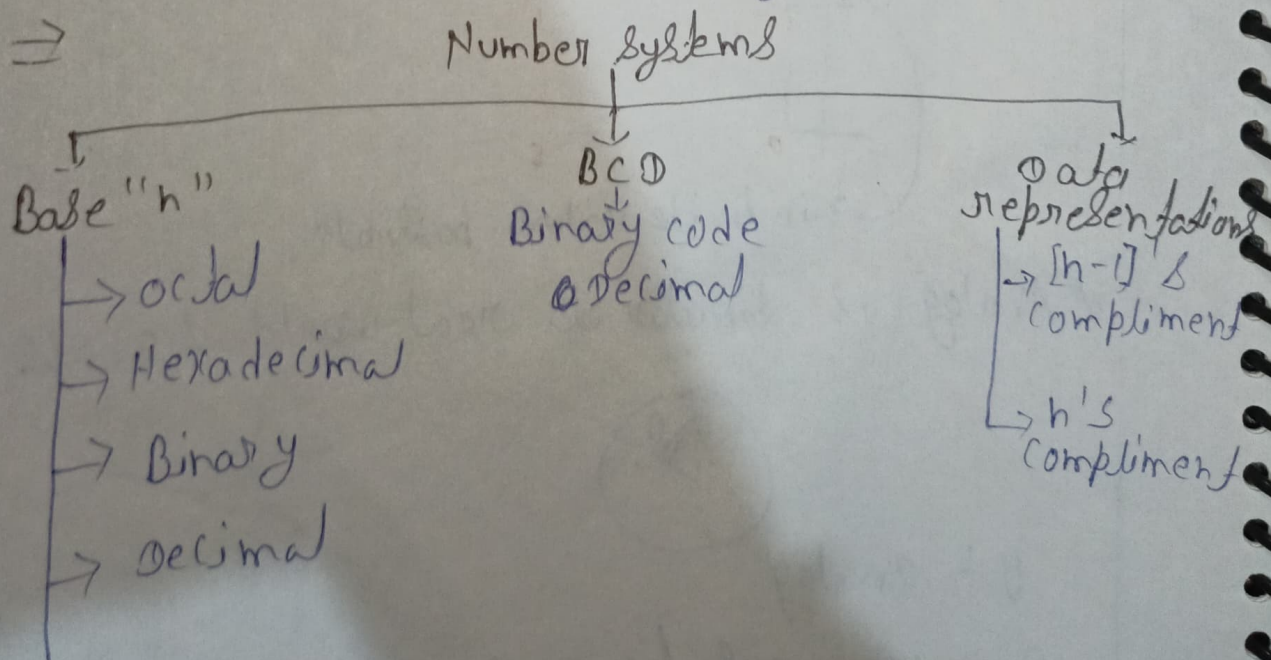 ⇒ Number systems
Base "n"
→ octal
→ Hexadecimal
→ Binary
→ Decimal
BCD
↓
Binary code
Decimal
Data
representations
→ [n-1]'s
compliment
→ n's
compliment